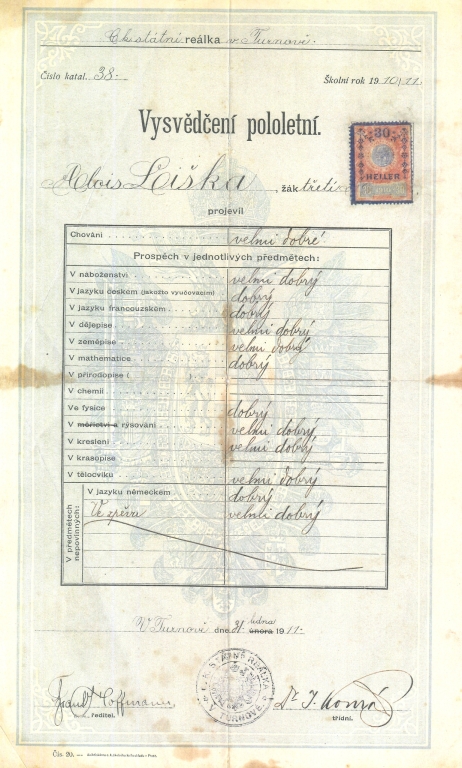 C. k. státní reálka v Turnově.
Číslo katal. 38.-
Školní rok 1910/11
Vysvědčení pololetní.
30
HELLER
Alois Liška, žák třetí
projevil
Chování velmi dobré
Prospěch v jednotlivých předmětech:
V náboženství velmi dobrý
V jazyku českém (jakožto vyučovacím) dobrý
V jazyku francouzském dobrý
V dějepise velmi dobrý
V zeměpise velmi dobrý
V mathematice dobrý
V přírodopise
V chemii
Ve fysice dobrý
V měřictví a rýsování velmi dobrý
V kreslení velmi dobrý
V krasopise
V tělocviku velmi dobrý
V předmětech nepovinných:
V jazyku německém dobrý
Ve zpěvu velmi dobrý
V Turnově dne 31. ledna února 1911.-
C. K. STÁTNÍ REÁLKA
V TURNOVĚ
Hoffmann
ředitel.
Dr. J.
třídní.
Čís. 20.